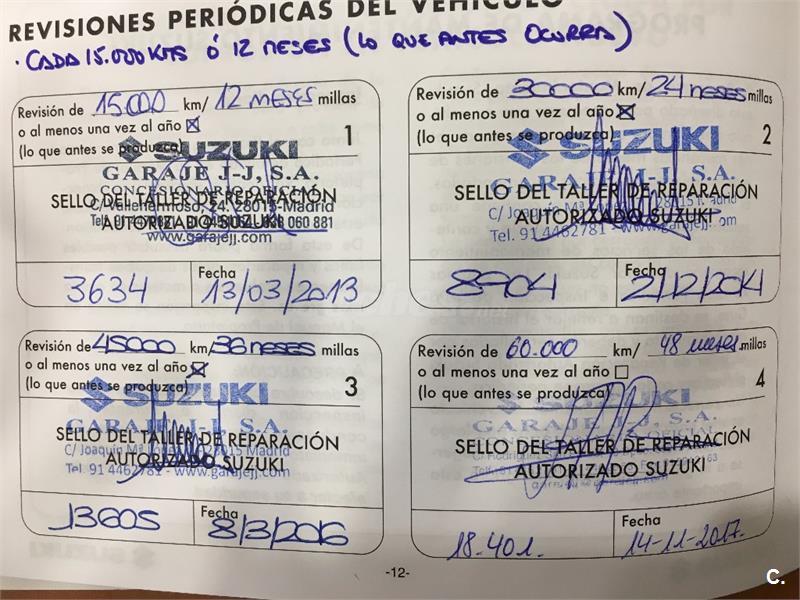 REVISIONES PERIÓDICAS DEL VEHÍCULO
· CADA 15.000 KMS Ó 12 MESES (LO QUE ANTES OCURRA)
Revisión de 15.000 km/ 12 MESES millas
o al menos una vez al año
(lo que antes se produzca)
1
SUZUKI
GARAJE J-J, S.A.
CONCESIONARIO OFICIAL
SELLO DEL TALLER DE REPARACIÓN
C/ Vallehermoso, 24. 28015-Madrid
AUTORIZADO SUZUKI
www.garajejj.com
3634
Fecha
13/03/2013
Revisión de 30000 km/ 24 MESES millas
o al menos una vez al año
(lo que antes se produzca)
2
SUZUKI
GARAJE S.A.
SELLO DEL TALLER DE REPARACIÓN
C/ Joaquín Mª
AUTORIZADO SUZUKI
Tel. 91 4462781 - www.garajejj.com
8904
Fecha
2/12/2014
Revisión de 45000 km/ 36 MESES millas
o al menos una vez al año
(lo que antes se produzca)
3
SUZUKI
GARAJE J-J, S.A.
SELLO DEL TALLER DE REPARACIÓN
C/ Joaquín Mª 28015 Madrid
AUTORIZADO SUZUKI
Tel. 91 4462781 - www.garajejj.com
13605
Fecha
8/3/2016
Revisión de 60.000 km/ 48 meses millas
o al menos una vez al año
(lo que antes se produzca)
4
SUZUKI
GARAJE J-J, S.A.
SELLO DEL TALLER DE REPARACIÓN
AUTORIZADO SUZUKI
18.401.
Fecha
14-11-2017.
-12-
SUZUKI
C.